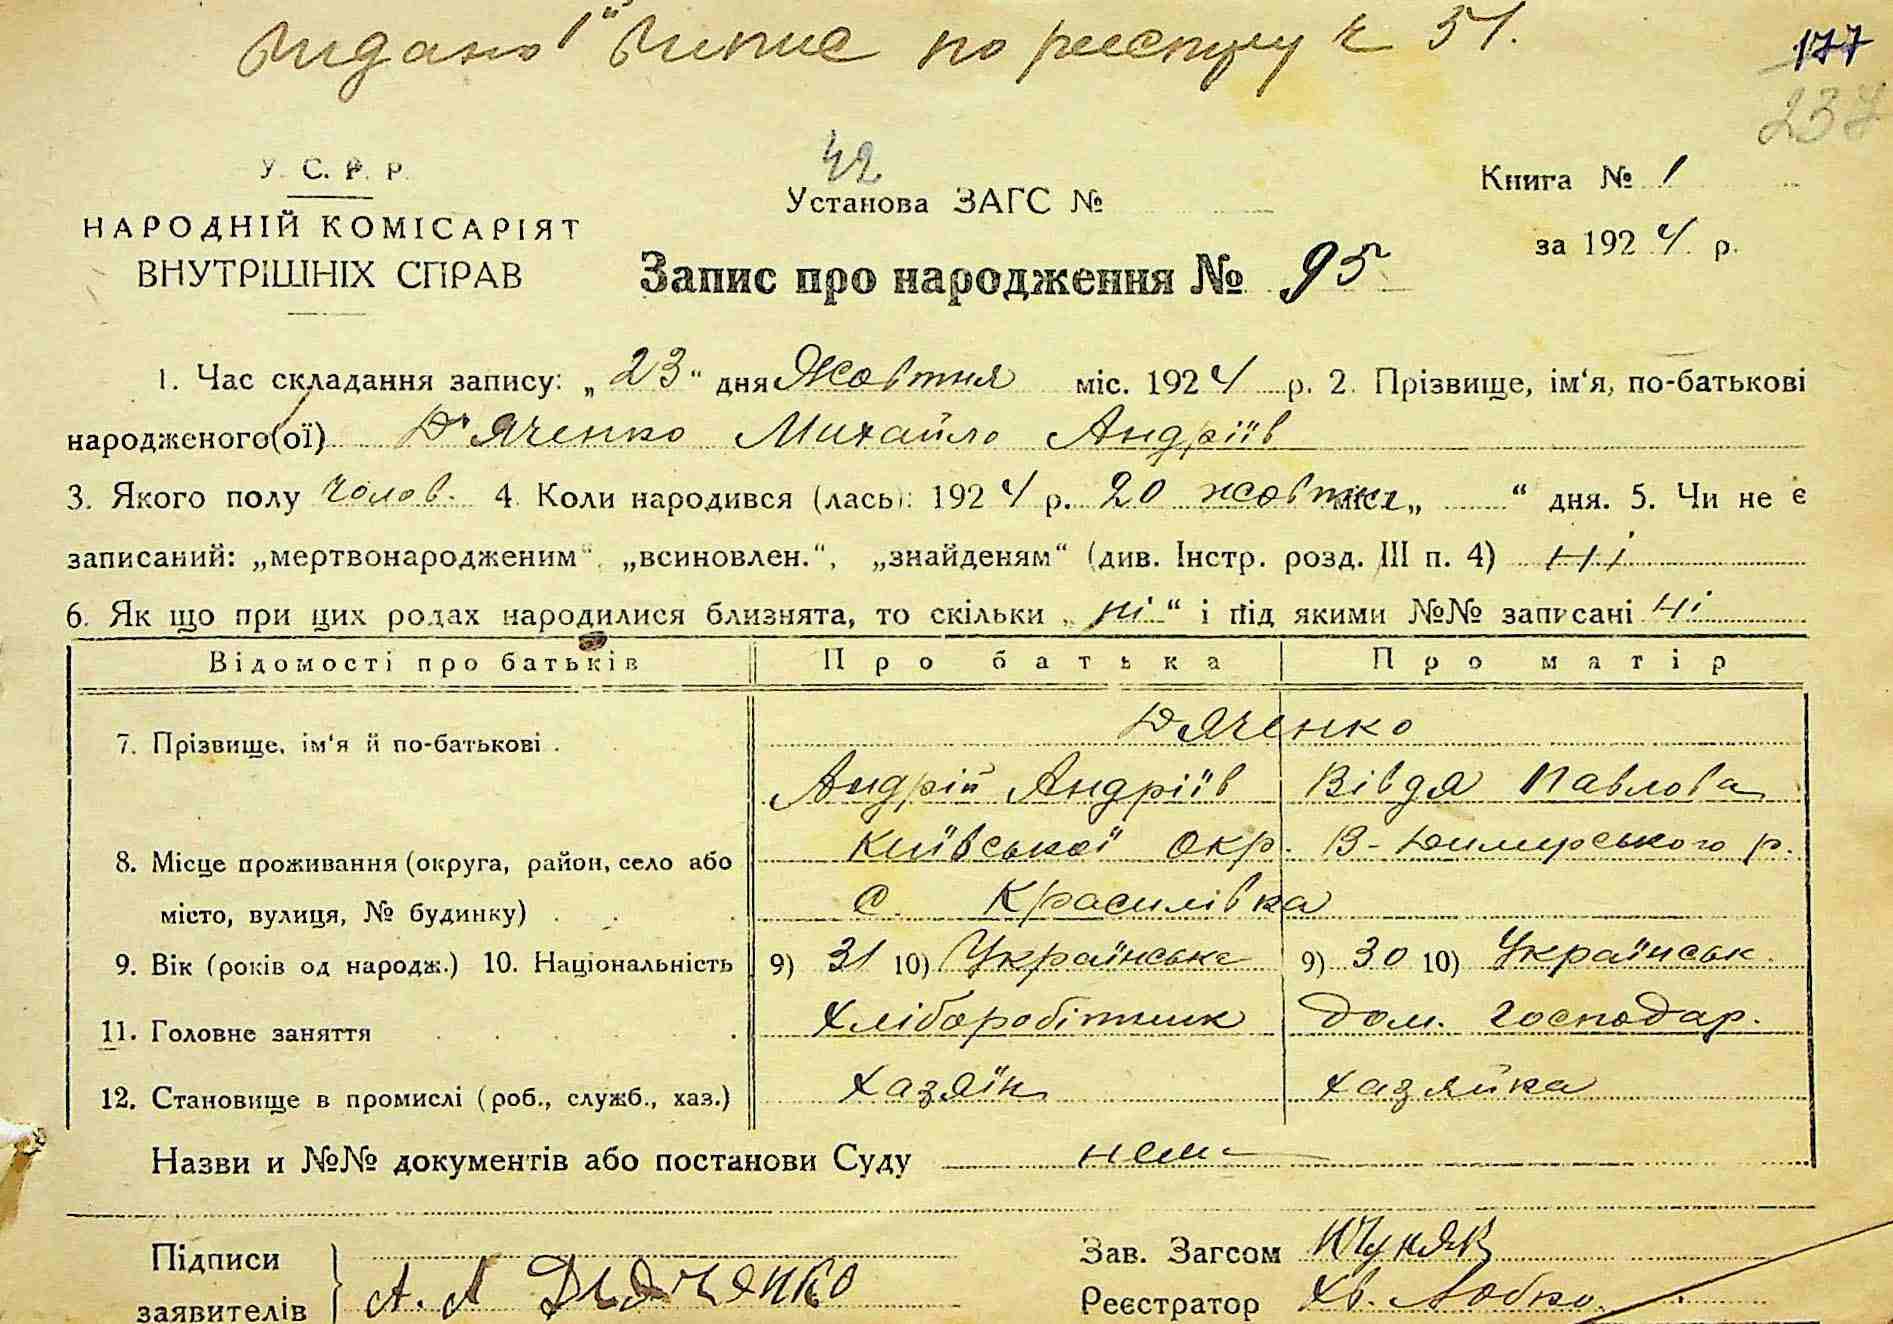 Видано Випис по реєстру № 51.
177
237
У. С. Р. Р.
42
Установа ЗАГС №
Книга № 1
НАРОДНІЙ КОМІСАРІЯТ
ВНУТРІШНІХ СПРАВ
за 1924 р.
Запис про народження № 95
1. Час складання запису: „23“ дня Жовтня міс. 1924 р. 2. Прізвище, ім‘я, по-батькові
народженого(ої) Д'яченко Михайло Андріїв
3. Якого полу чолов. 4. Коли народився (лась): 1924 р. 20 жовтня міс. „ “ дня. 5. Чи не є
записаний: „мертвонародженим“, „всиновлен.“, „знайденям“ (див. Інстр. розд. III п. 4) ні
6. Як що при цих родах народилися близнята, то скільки „ні“ і під якими №№ записані ні
Відомості про батьків Про батька Про матір
Дяченко
7. Прізвище, ім‘я й по-батькові .
Андрій Андріїв Вівдя Павлова
Київської окр. В-Димирського р.
8. Місце проживання (округа, район, село або
місто, вулиця, № будинку) . . . с. Красилівка
9. Вік (років од народж.) 10. Національність 9) 31 10) Українська 9) 30 10) Українськ.
11. Головне заняття Хлібаробітник дом. господар.
12. Становище в промислі (роб., служб., хаз.) хазяїн хазяйка
Назви и №№ документів або постанови Суду нема
Підписи
заявителів А. А Дьяченко
Зав. Загсом
Реєстратор Хв. Лобко